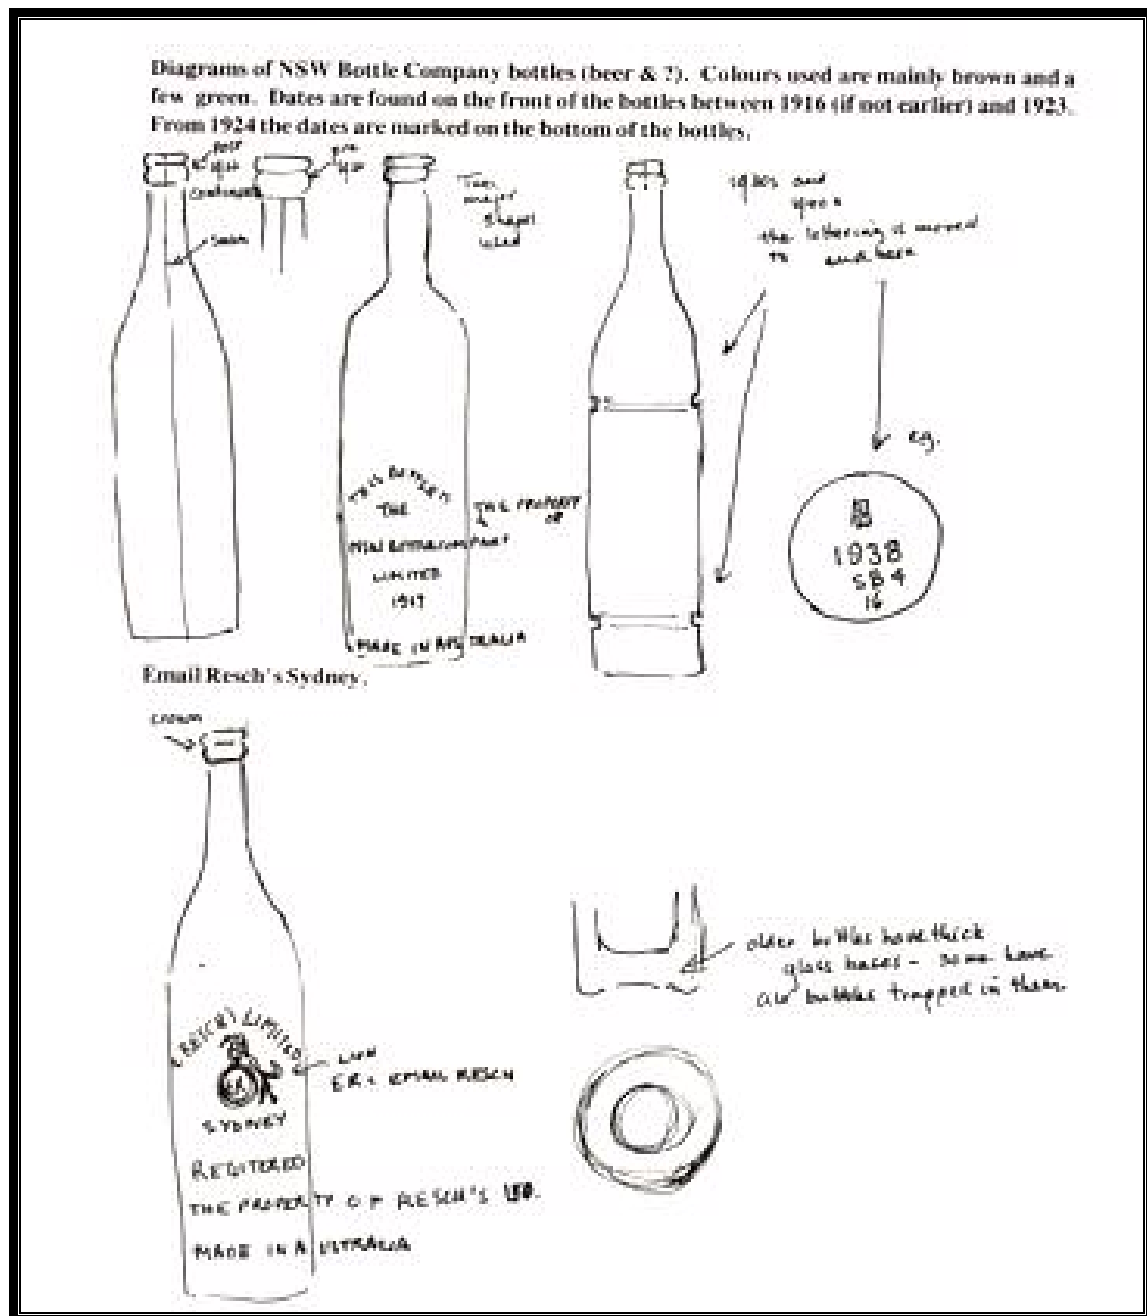 Diagrams of NSW Bottle Company bottles (beer & ?). Colours used are mainly brown and a
few green. Dates are found on the front of the bottles between 1916 (if not earlier) and 1923.
From 1924 the dates are marked on the bottom of the bottles.
post
pre
continuous
seam
Two
major
shapes
used
and
the lettering is moved
to and here
eg.
THIS BOTTLE IS
THE
THE PROPERTY
OF
NSW BOTTLE COMPANY
LIMITED
MADE IN AUSTRALIA
1938
SB4
16
Email Resch's Sydney.
crown
E RESCH'S LIMITED
LION
ER = EMAIL RESCH
ER
SYDNEY
REGITERED
THE PROPERTY OF RESCH'S LTD.
MADE IN AUSTRALIA
older bottles have thick
glass bases - some have
air bubbles trapped in them.